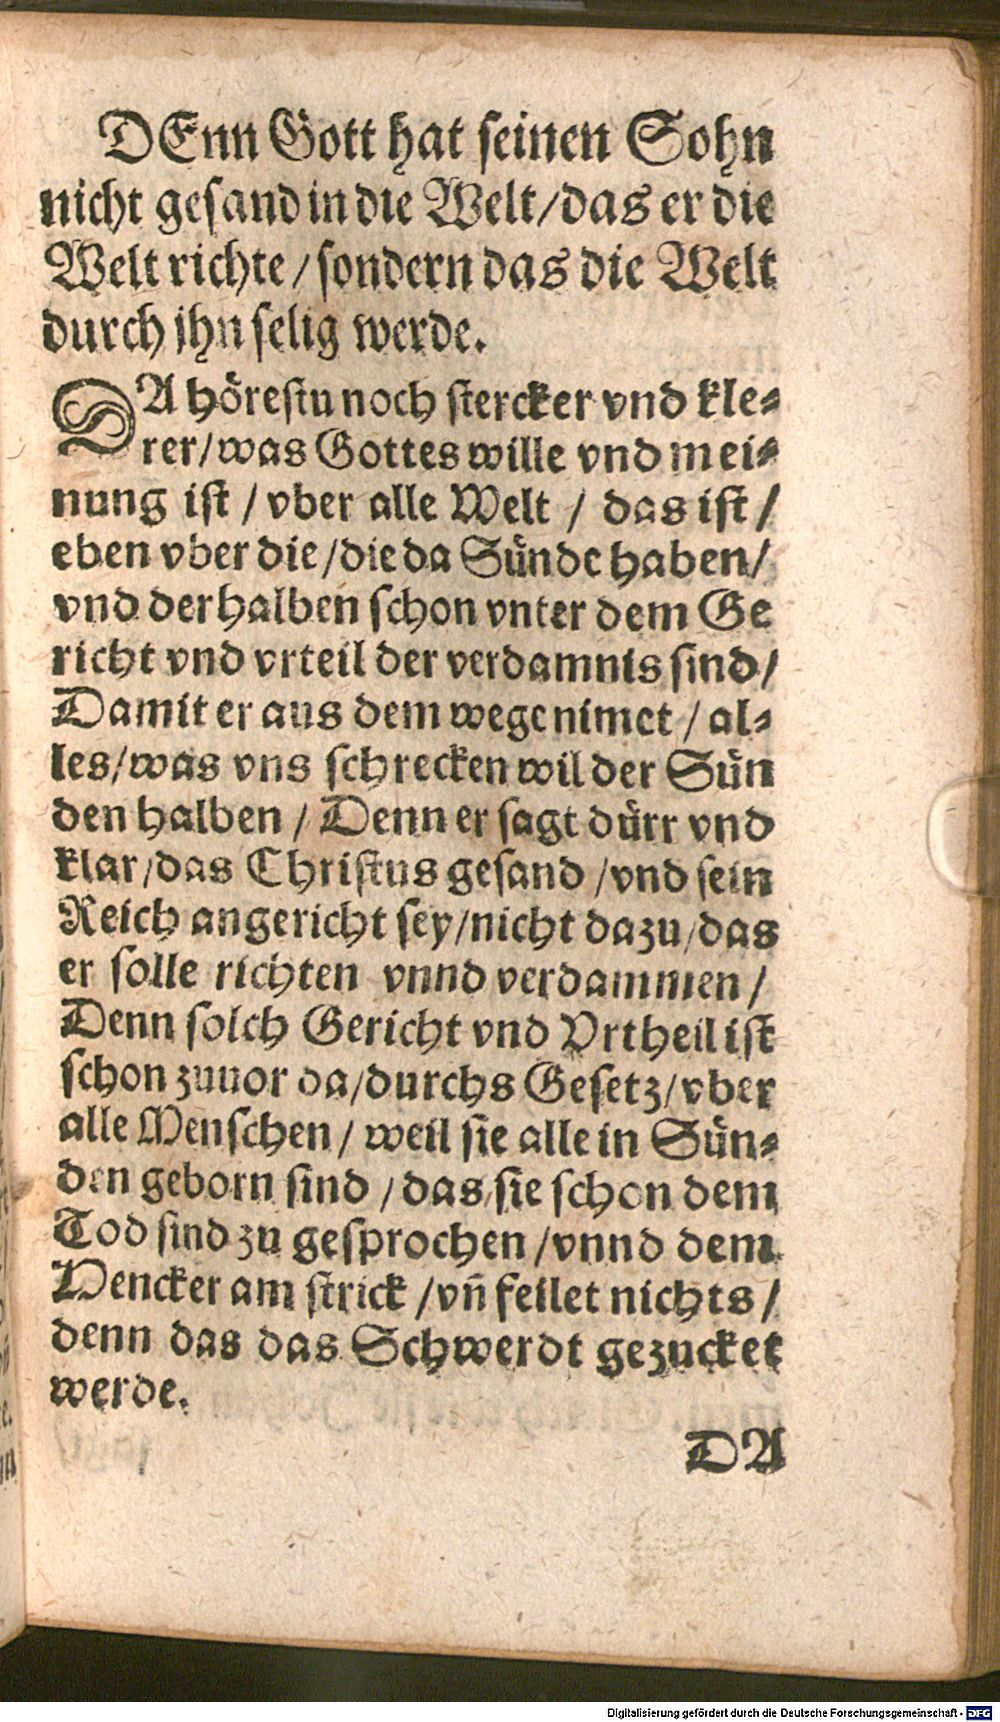 DEnn Gott hat seinen Sohn
nicht gesand in die Welt/das er die
Welt richte/sondern das die Welt
durch jhn selig werde.
DA hörestu noch stercker vnd kle-
rer/was Gottes wille vnd mei-
nung ist/vber alle Welt/das ist/
eben vber die/die da Sünde haben/
vnd derhalben schon vnter dem Ge
richt vnd vrteil der verdamnis sind/
Damit er aus dem wege nimet/al-
les/was vns schrecken wil der Sün
den halben/Denn er sagt dürr vnd
klar/das Christus gesand/vnd sein
Reich angericht sey/nicht dazu/das
er solle richten vnnd verdammen/
Denn solch Gericht vnd Vrtheil ist
schon zuuor da/durchs Gesetz/vber
alle Menschen/weil sie alle in Sün-
den geborn sind/das sie schon dem
Tod sind zu gesprochen/vnnd dem
Hencker am strick/vñ feilet nichts/
denn das das Schwerdt gezucket
werde.
DA
Digitalisierung gefördert durch die Deutsche Forschungsgemeinschaft - DFG